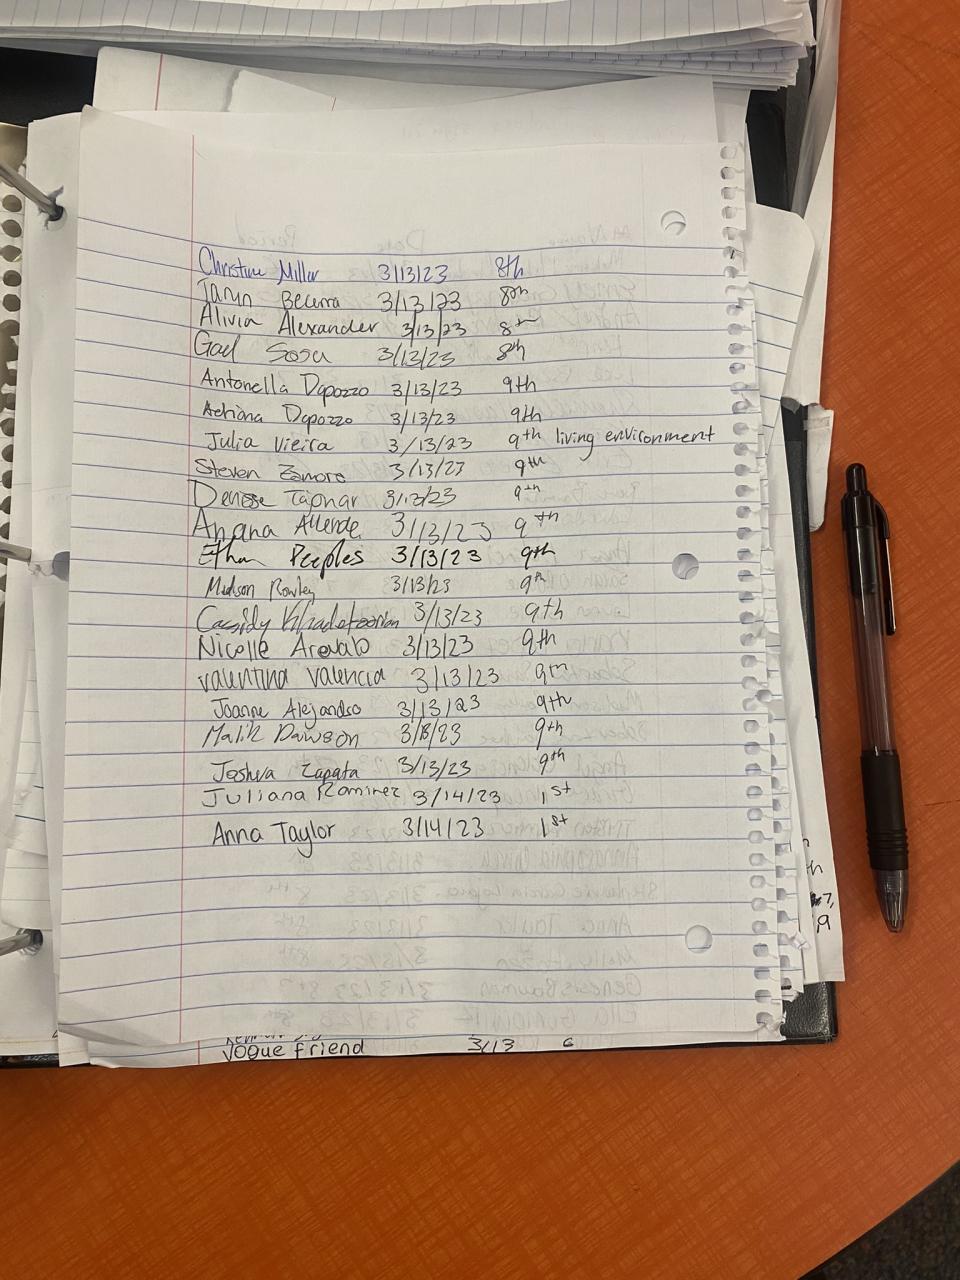 Christine Millar 3/13/23 8th
Becerra 3/13/23 8th
Alivia Alexander 3/13/23 8th
Gael Sosa 3/13/23 8th
Antonella Dapozzo 3/13/23 9th
Adriana Dapozzo 3/13/23 9th
Julia Vieira 3/13/23 9th living environment
Steven Zamora 3/13/23 9th
Denisse 3/13/23 9th
Allende 3/13/23 9th
Ethan Peeples 3/13/23 9th
Madison Rowley 3/13/23 9th
Cassidy 3/13/23 9th
Nicolle Arevalo 3/13/23 9th
Valentina Valencia 3/13/23 9th
Joanne Alejandro 3/13/23 9th
Malik Dawson 3/13/23 9th
Joshua Zapata 3/13/23 9th
Juliana Ramirez 3/14/23 1st
Anna Taylor 3/14/23 1st
Vogue friend 3/13 6